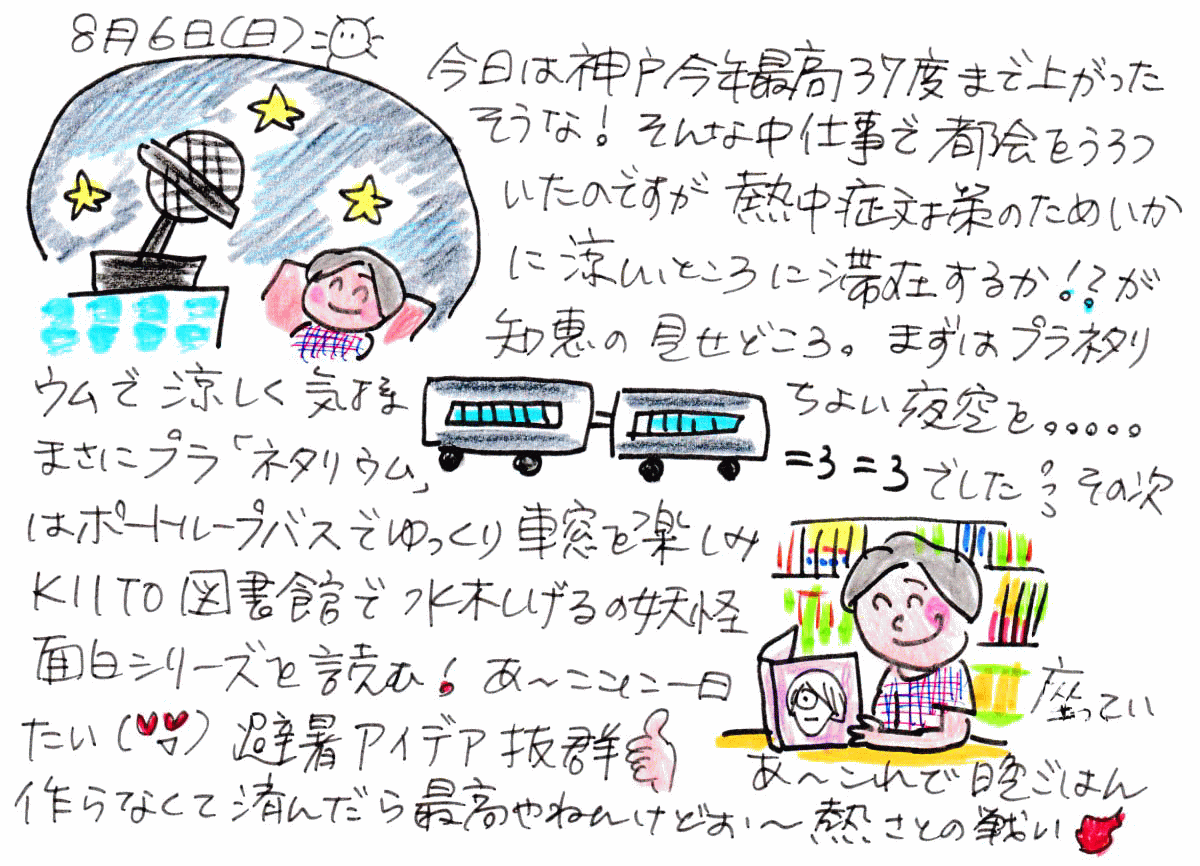 8月6日(日)=
今日は神戸今年最高37度まで上がった
そうな！そんな中仕事で都会をうろつ
いたのですが熱中症対策のためいか
に涼しいところに滞在するか！？が
知恵の見せどころ。まずはプラネタリ
ウムで涼しく気持ちよい夜空を。。。。。
まさにプラ「ネタリウム」=3=3でした。その次
はポートループバスでゆっくり車窓を楽しみ
KIITO図書館で水木しげるの妖怪
面白シリーズを読む！あ〜ここに一日座ってい
たい()避暑アイデア抜群
あ〜これで晩ごはん
作らなくて済んだら最高やねんけどぉ〜熱さとの戦い